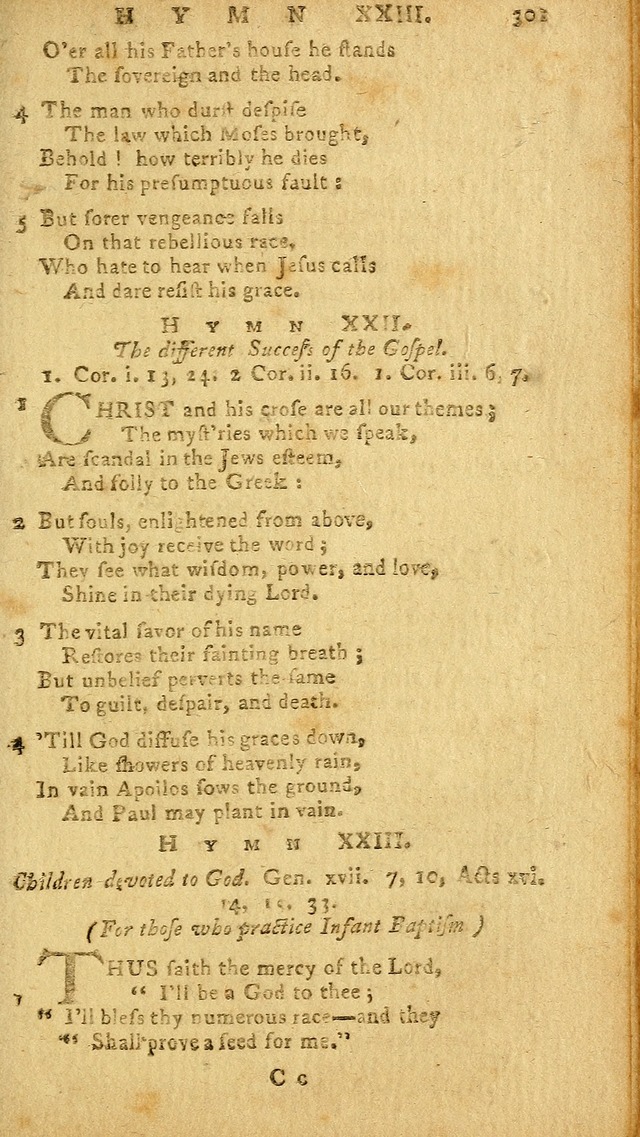 H Y M N XXIII. 301
O'er all his Father's houſe he ſtands
The ſovereign and the head.
4 The man who durſt deſpiſe
The law which Moſes brought,
Behold ! how terribly he dies
For his preſumptuous fault :
5 But ſorer vengeance falls
On that rebellious race,
Who hate to hear when Jeſus calls
And dare reſiſt his grace.
H Y M N XXII.
The different Succeſs of the Goſpel.
1. Cor. i. 13, 24. 2 Cor. ii. 16. 1. Cor. iii. 6, 7.
1 CHRIST and his croſe are all our themes;
The myſt'ries which we ſpeak,
Are ſcandal in the Jews eſteem,
And folly to the Greek :
2 But ſouls, enlightened from above,
With joy receive the word ;
They ſee what wiſdom, power, and love,
Shine in their dying Lord.
3 The vital ſavor of his name
Reſtores their fainting breath ;
But unbelief perverts the ſame
To guilt, deſpair, and death.
4 'Till God diffuſe his graces down,
Like ſhowers of heavenly rain,
In vain Apollos ſows the ground,
And Paul may plant in vain.
H Y M N XXIII.
Children devoted to God. Gen. xvii. 7, 10, Acts xvi.
14, 15, 33.
(For thoſe who practice Infant Baptiſm )
THUS ſaith the mercy of the Lord,
" I'll be a God to thee ;
" I'll bleſs thy numerous race—and they
" Shall prove a ſeed for me."
C c